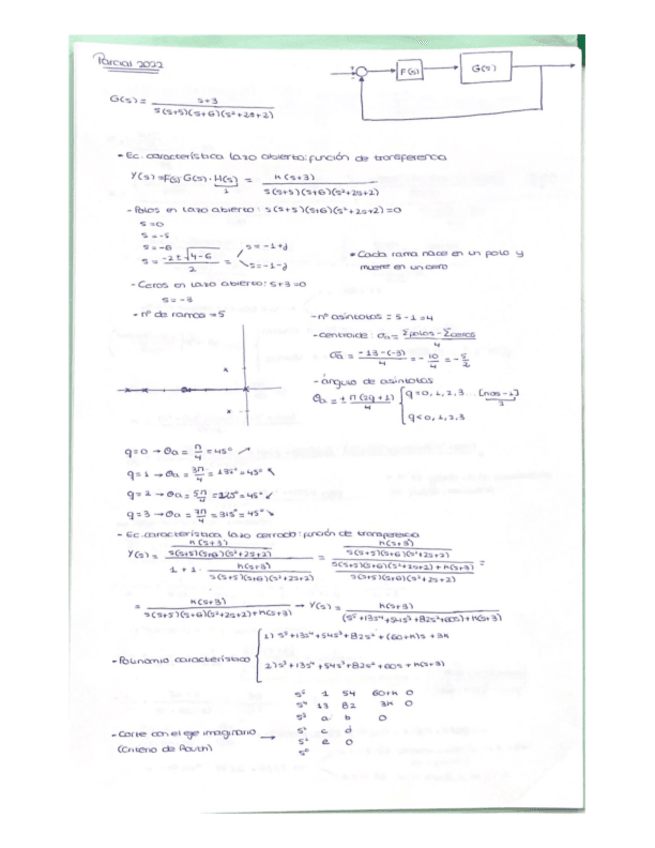 Parcial 2022
F(s)
G(s)
G(s) = s+3 / s(s+5)(s+6)(s²+2s+2)
- Ec. característica lazo abierto: función de transferencia
Y(s) = F(s)·G(s)·H(s) = K(s+3) / s(s+5)(s+6)(s²+2s+2)
1
- Polos en lazo abierto: s(s+5)(s+6)(s²+2s+2)=0
s=0
s=-5
s=-6
s = -2±√4-6 / 2 = s=-1+j
s=-1-j
* Cada rama nace en un polo y
muere en un cero
- Ceros en lazo abierto: s+3=0
s=-3
- nº de ramas = 5
- nº asíntotas = 5-1=4
- centroide: σa = Σpolos - Σceros / 4
σa = -13-(-3) / 4 = -10/4 = -5/2
- ángulo de asíntotas
θa = ± π(2q+1) / 4
q=0,1,2,3... [nas-1]
3
q=0,1,2,3
q=0 → θa = π/4 = 45° ↗
q=1 → θa = 3π/4 = 135° = 45° ↖
q=2 → θa = 5π/4 = 225° = 45° ↙
q=3 → θa = 7π/4 = 315° = 45° ↘
- Ec. característica lazo cerrado: función de transferencia
Y(s) = K(s+3) / s(s+5)(s+6)(s²+2s+2) / 1 + 1· K(s+3) / s(s+5)(s+6)(s²+2s+2) = K(s+3) / s(s+5)(s+6)(s²+2s+2) / s(s+5)(s+6)(s²+2s+2)+K(s+3) / s(s+5)(s+6)(s²+2s+2) =
= K(s+3) / s(s+5)(s+6)(s²+2s+2)+K(s+3) → Y(s) = K(s+3) / (s⁵+13s⁴+54s³+82s²+60s)+K(s+3)
1) s⁵+13s⁴+54s³+82s²+(60+K)s+3K
- Polinomio característico
2) s⁵+13s⁴+54s³+82s²+60s+K(s+3)
s⁵ 1 54 60+K 0
s⁴ 13 82 3K 0
s³ a b 0
- Corte con el eje imaginario → s² c d
(Criterio de Routh) s¹ e 0
s⁰